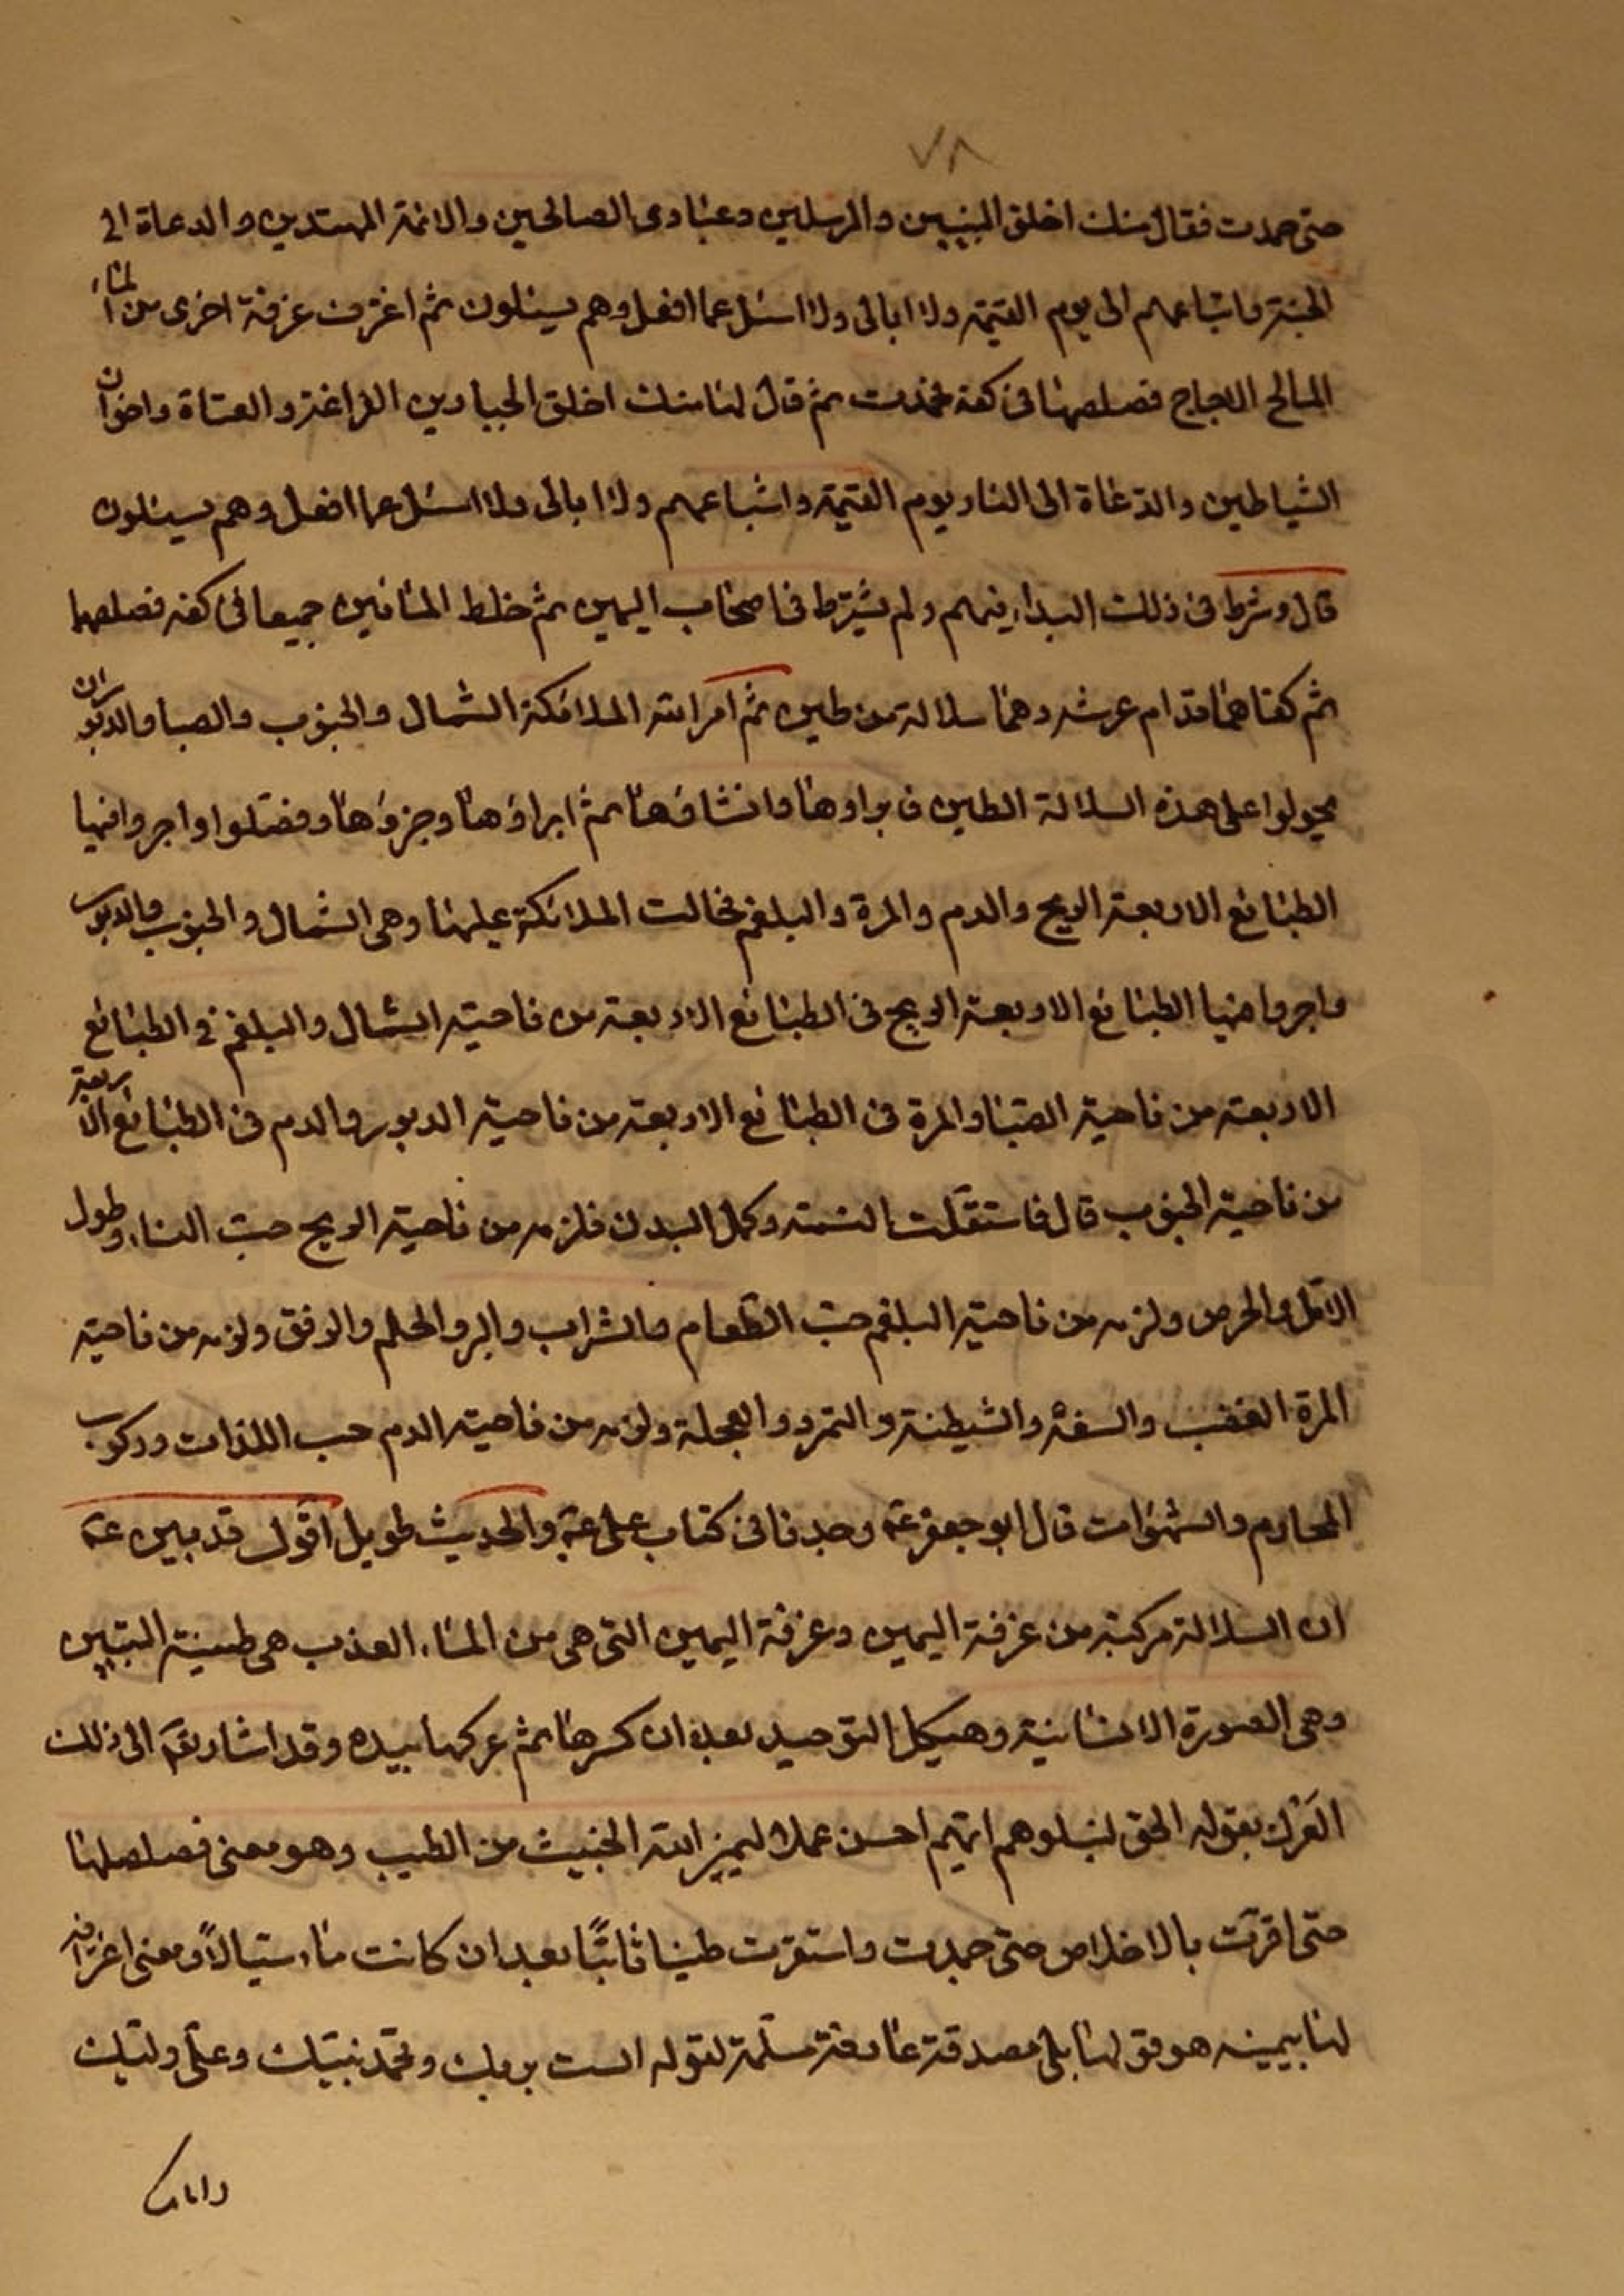 ٧٨
حتى جمدت فقال منك اخلق النبيين والمرسلين وعبادى الصالحين والائمة المهتدين والدعاة الى
الجنة واتباعهم الى يوم القيمة ولا ابالى ولا اسئل عما افعل وهم يسئلون ثم اغترف غرفة اخرى من الماء
المالح الاجاج فصلصلها فى كفه فجمدت ثم قال لها منك اخلق الجبارين الفراعنة والعتاة واخوان
الشياطين والدعاة الى النار يوم القيمة واشياعهم ولا ابالى ولا اسئل عما افعل وهم يسئلون
قال وشرط فى ذلك البداء فيهم ولم يشترط فى اصحاب اليمين ثم خلط المائين جميعا فى كفه فصلصلهما
ثم كفاهما قدام عرشه وهما سلالة من طين ثم امر الله الملائكة الشمال والجنوب والصبا والدبور ان
يجولوا على هذه السلالة الطين فابراوها وانشاؤها ثم ابراؤها وجزؤها وفصلوا واجروا فيها
الطبائع الاربعة الريح والدم والمرة والبلغم فجالت الملائكة عليها وهى الشمال والجنوب والدبور
واجروا فيها الطبائع الاربعة الريح فى الطبائع الاربعة من ناحية الشمال والبلغم فى الطبائع
الاربعة من ناحية الصبا والمرة فى الطبائع الاربعة من ناحية الدبور والدم فى الطبائع الاربعة
من ناحية الجنوب قال فاستقلت النسمة وكمل البدن فلزمه من ناحية الريح حب النساء وطول
الامل والحرص ولزمه من ناحية البلغم حب الطعام والشراب والبر والحلم والرفق ولزمه من ناحية
المرة الغضب والسفه والشيطنة والتمرد والعجلة ولزمه من ناحية الدم حب اللذات وركوب
المحارم والشهوات قال ابو جعفر عه وجدنا فى كتاب على عه والحديث طويل اقول قد بين عه
ان السلالة مركبة من غرفة اليمين وغرفة اليمين التى هى من الماء العذب هى طينة النبيين
وهى الصورة الانسانية وهيكل التوحيد بعد ان كسرها ثم عركها بيده وقد اشار تعم الى ذلك
العرك بقوله الحق لنبلوهم ايهم احسن عملا ليميز الله الخبيث من الطيب وهو معنى فصلصلها
حتى اقرت بالاخلاص حتى جمدت واستقرت طينا ثابتا بعد ان كانت ماء سيالاً ومعنى اغترافه
لها بيمينه هو قولها بلى مصدقة عارفة مسلمة لقوله الست بربك ومحمد نبيك وعلى وليك